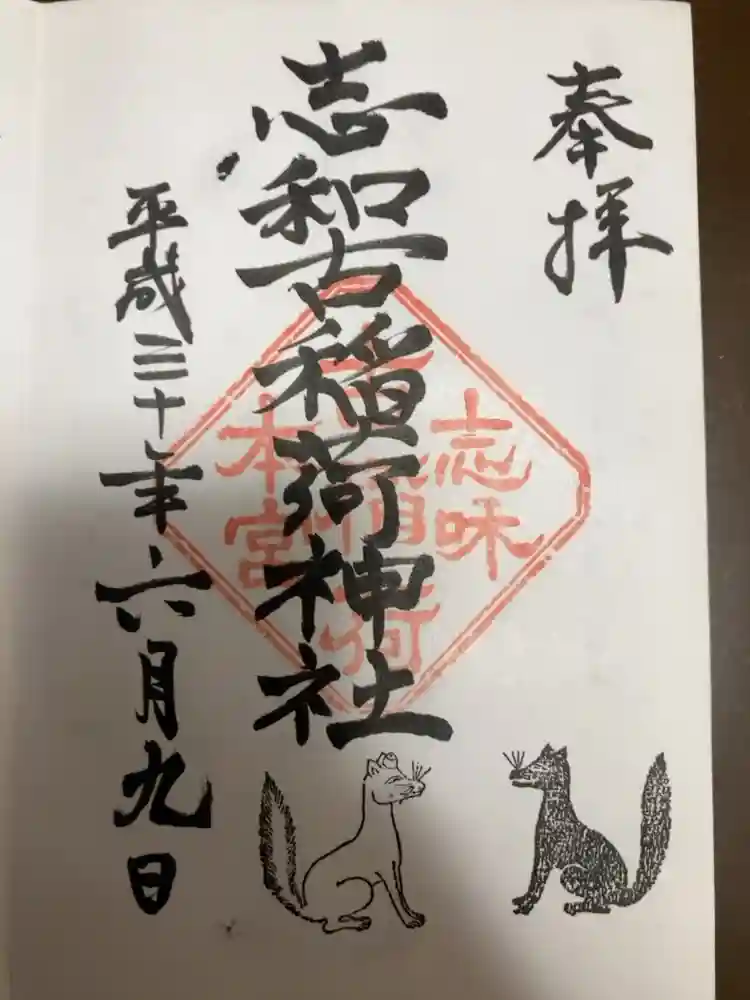 奉拝
志和古稲荷神社
平成三十年六月九日
志味
本宮